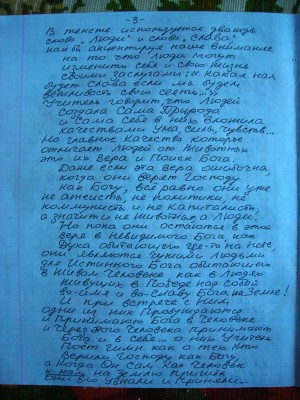 -3-
В тексте используется дважды
слово "Люди" и слово "Слава"
как бы акцентируя наше внимание
на то что люди могут
изменить себя и свою жизнь
своими заслугами: и какая нам
будет слава если мы будем
свою
Учитель говорит, что Людей
создала Сама Природа
и сама себе в них вложила
качествами ума, силы, чувств...
Но главное качество которое
отличает Людей от Животных
это их Вера и Поиск Бога.
Даже если эта вера ошибочна,
когда они верят Господу
как Богу, всё равно они уже
не атеисты, не политики, не
коммунисты и не капиталисты,
а значит и не Животные, а Люди!
Но пока они остаются в этой
вере в Невидимого Бога как
Духа обитающего где-то на небе,
они являются чужими Людьми
для Истинного Бога обитающего
в Живом Человеке как в Людях
Живущих в Победе над собой
во-имя и во-славу Бога на Земле!
И при встрече с Ним
одни из них Пробуждаются
и Принимают Бога в Человеке
и через этого Человека принимают
Бога и в себе... о них Учитель
Поёт гимн как о тех кто
Верили Господу как Богу,
а когда Он Сам как Человек
к ним на Землю пришёл
они Его узнали и Приняли...